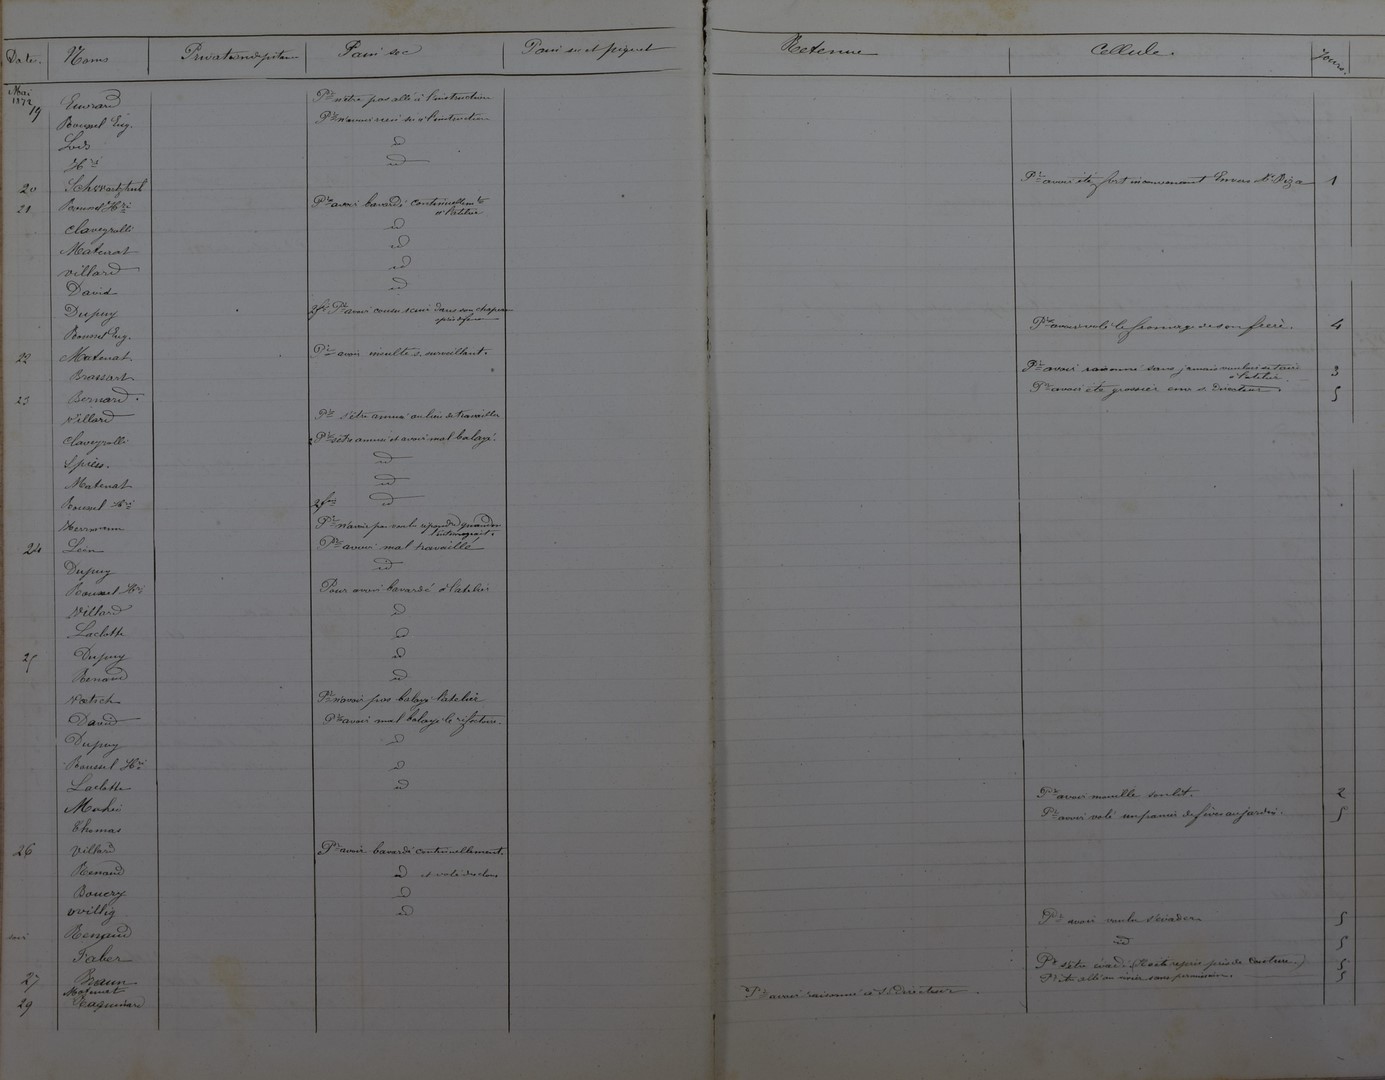 Dates. Noms Privation de pitance Pain sec Pain sec et piquet Retenue Cellule. Jours.
Mai 1872
19 Euvrard Pr n'être pas allé à l'instruction
Rousset Eug. Pr n'avoir rien su à l'instruction
id
Hri id
20 Pr avoir été fort inconvenant Envers 1
21 Rousset Hri Pr avoir bavardé continuellemt à l'atelier
Claveyrolli id
Matenat id
Villard id
David id
Dupuy Pr avoir dans son
Rousset Eug. Pr avoir volé le fromage de son frère. 4
22 Matenat Pr avoir insulté s. surveillant.
Brassart Pr avoir raisonné sans jamais vouloir se taire à l'atelier 3
23 Bernard. Pr avoir été grossier env. s. Directeur. 5
Villard Pr s'être amusé au lieu de travailler
Claveyrolli Pr s'être amusé et avoir mal balayé.
Spiess. id
Matenat id
Rousset Hri 2 fois id
Herrmann Pr n'avoir pas voulu répondre quand on l'interrogeait.
24 Pr avoir mal travaillé
Dupuy id
Rousset Hri Pour avoir bavardé à l'atelier
Villard id
Laclotte id
25 Dupuy id
Renaud id
Pr n'avoir pas balayé l'atelier
David Pr avoir mal balayé le réfectoire.
Dupuy id
Rousset Hri id
Laclotte id
Pr avoir mouillé son lit. 2
Thomas Pr avoir volé un panier de fèves au jardin. 5
26 Villard Pr avoir bavardé continuellement.
Renaud id et volé des clous
Bouery id
Willig id
soir Renaud Pr avoir voulu s'évader 5
Faber id 5
27 Braun Pr s'être évadé (Il a été repris près de ) 5
Matenat Pr être allé sans permission. 5
29 Pr avoir raisonné à s. Directeur.